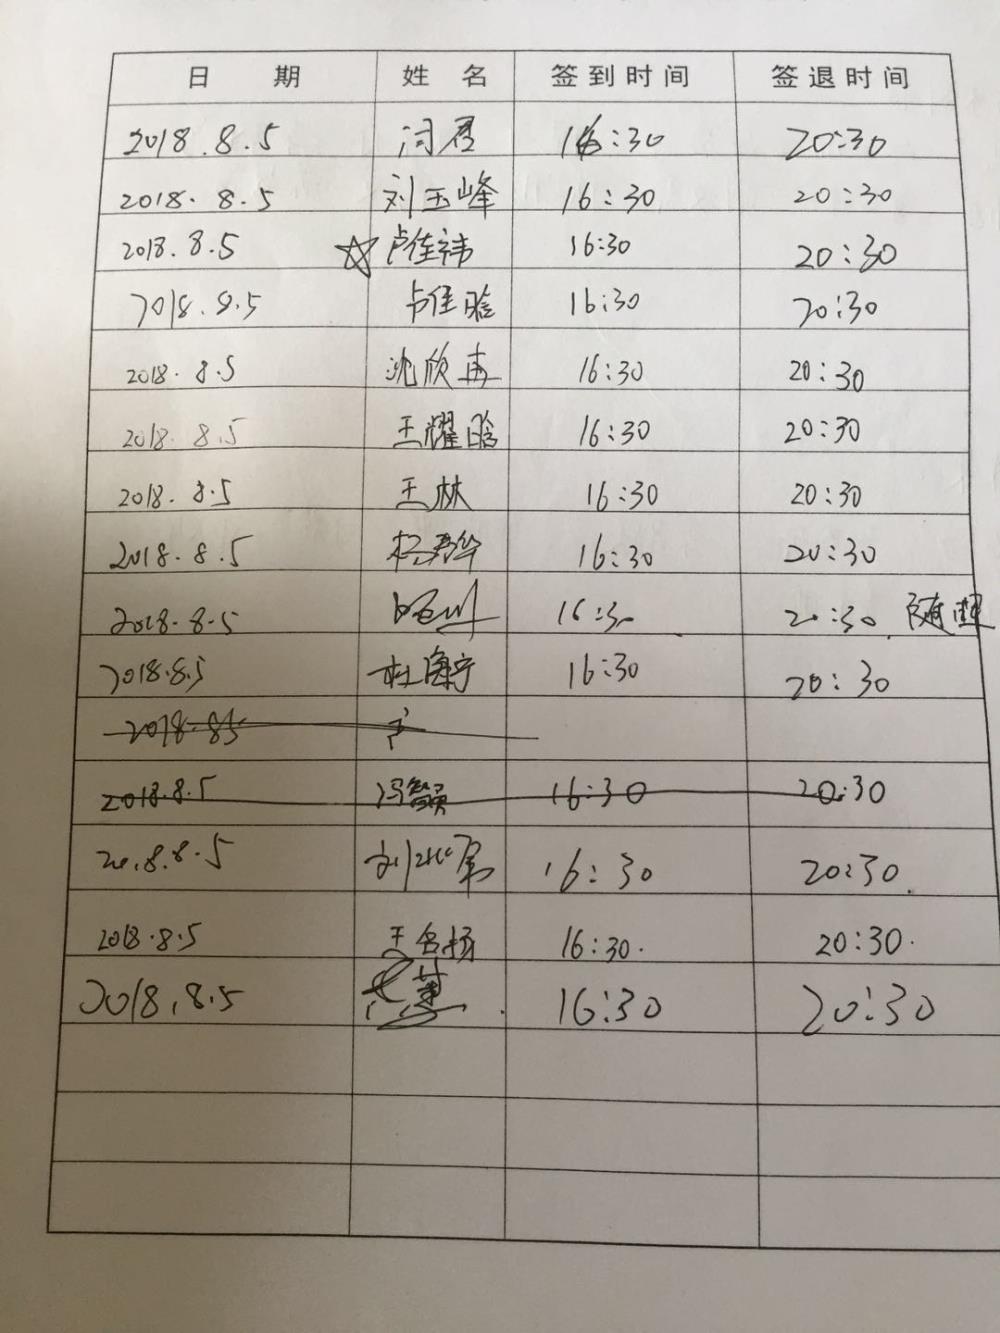 日 期 姓 名 签到时间 签退时间
2018.8.5 闫君 16:30 20:30
2018.8.5 刘玉峰 16:30 20:30
2018.8.5 ☆卢佳祎 16:30 20:30
2018.8.5 卢佳晗 16:30 20:30
2018.8.5 沈欣冉 16:30 20:30
2018.8.5 王耀晗 16:30 20:30
2018.8.5 王林 16:30 20:30
2018.8.5 16:30 20:30
2018.8.5 16:30 20:30
2018.8.5 杜海宁 16:30 20:30
2018.8.5
2018.8.5 16:30 20:30
2018.8.5 16:30 20:30.
2018.8.5 王名杨 16:30. 20:30.
2018.8.5 16:30 20:30